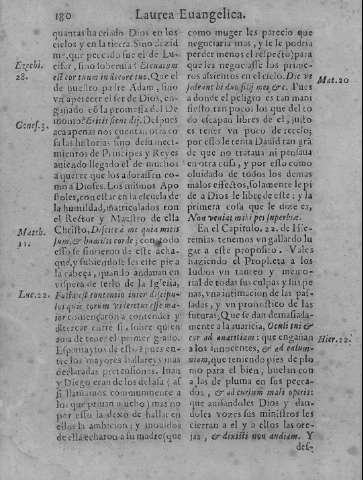 180 Laurea Euangelica.
quantas ha criado Dios en los
cielos y en la tierra. Sino dezid
me, que peccado fue el de Lu-
cifer, sino soberuia? Eleuatum
est cor tuum in decore tuo. Que el
de nuestro padre Adam, sino
vn apetecer el ser de Dios, en-
gañado cõ la promessa del De-
monio? Eritis sicut dij. Despues
aca apenas nos cuentan otra co
sa las historias sino desuane-
cimientos de Principes y Reyes
auiendo llegado el de muchos
a querer que los adorassen co-
mo a Dioses. Los mismos Apo
stoles, con estar en la escuela de
la humildad, matriculados con
el Rector y Maestro de ella
Christo, Discite à me quia mitis
sum, & humilis corde; con todo
esso se sintieron de este acha-
que, y subiendole este pie a
la cabeça, quando andauan en
vispera de serlo de la Iglesia,
Facta est contentio inter discipu-
los quis eorum videretur esse ma-
ior començaron a contender y
altercar entre si, sobre quien
auia de tener el primer grado.
Espantayos de esto? pues en-
tre los mayores hallareys mas
declaradas pretensiones. Iuan
y Diego eran de los de la sa (assi
si llamamos communmente a
los que priuan mucho) mas no
por esso la dexo de hallar en
ellos la ambicion, y inouidos
de ella echaron a su madre (que
como muger les parecio que
negociaria mas, y la le podria
perder menos el respecto) para
que les negociasse los prime-
ros assientos en el cielo. Dic vt
sedeant hi duo filij mei, &c. Pues
a donde el peligro es tan mani
fiesto, tan pocos los que del to
do escapan libres de el, justo
es tener vn poco de recelo;
por esso lo tenia Dauid tan grã
de que no trataua ni pensaua
en otra cosa, y por esso como
oluidado de todos los demas
malos effectos, solamente le pi-
de a Dios le libre de este: y la
primera cosa que le dize es,
Non veniat mihi pes superbiæ.
En el Capitulo. 22. de Hie-
remias tenemos vn gallardo lu
gar a este proposito. Vales
haziendo el Propheta a los
Iudios vn tanteo y memo-
rial de todas sus culpas y sus pe
nas, vna summacion de las pas-
sadas, y vn pronostico de las
futuras, Que se dan demasiada-
mente a la auaricia, Oculi tui &
cor ad auaritiam: que engañan
a los innocentes, & ad calum-
niam, que teniendo pies de plo
mo para el bien, huelan con
alas de pluma en sus pecca-
dos, & ad cursum mali operis:
que auiandoles Dios y dan-
doles vozes sus ministros les
cierran a el y a ellos las ore-
jas, & dixisti non audiam. Y
des-
Ezechi.
28.
Genes. 3.
Matth.
11.
Luc. 22.
Mat. 20
Hier. 22.